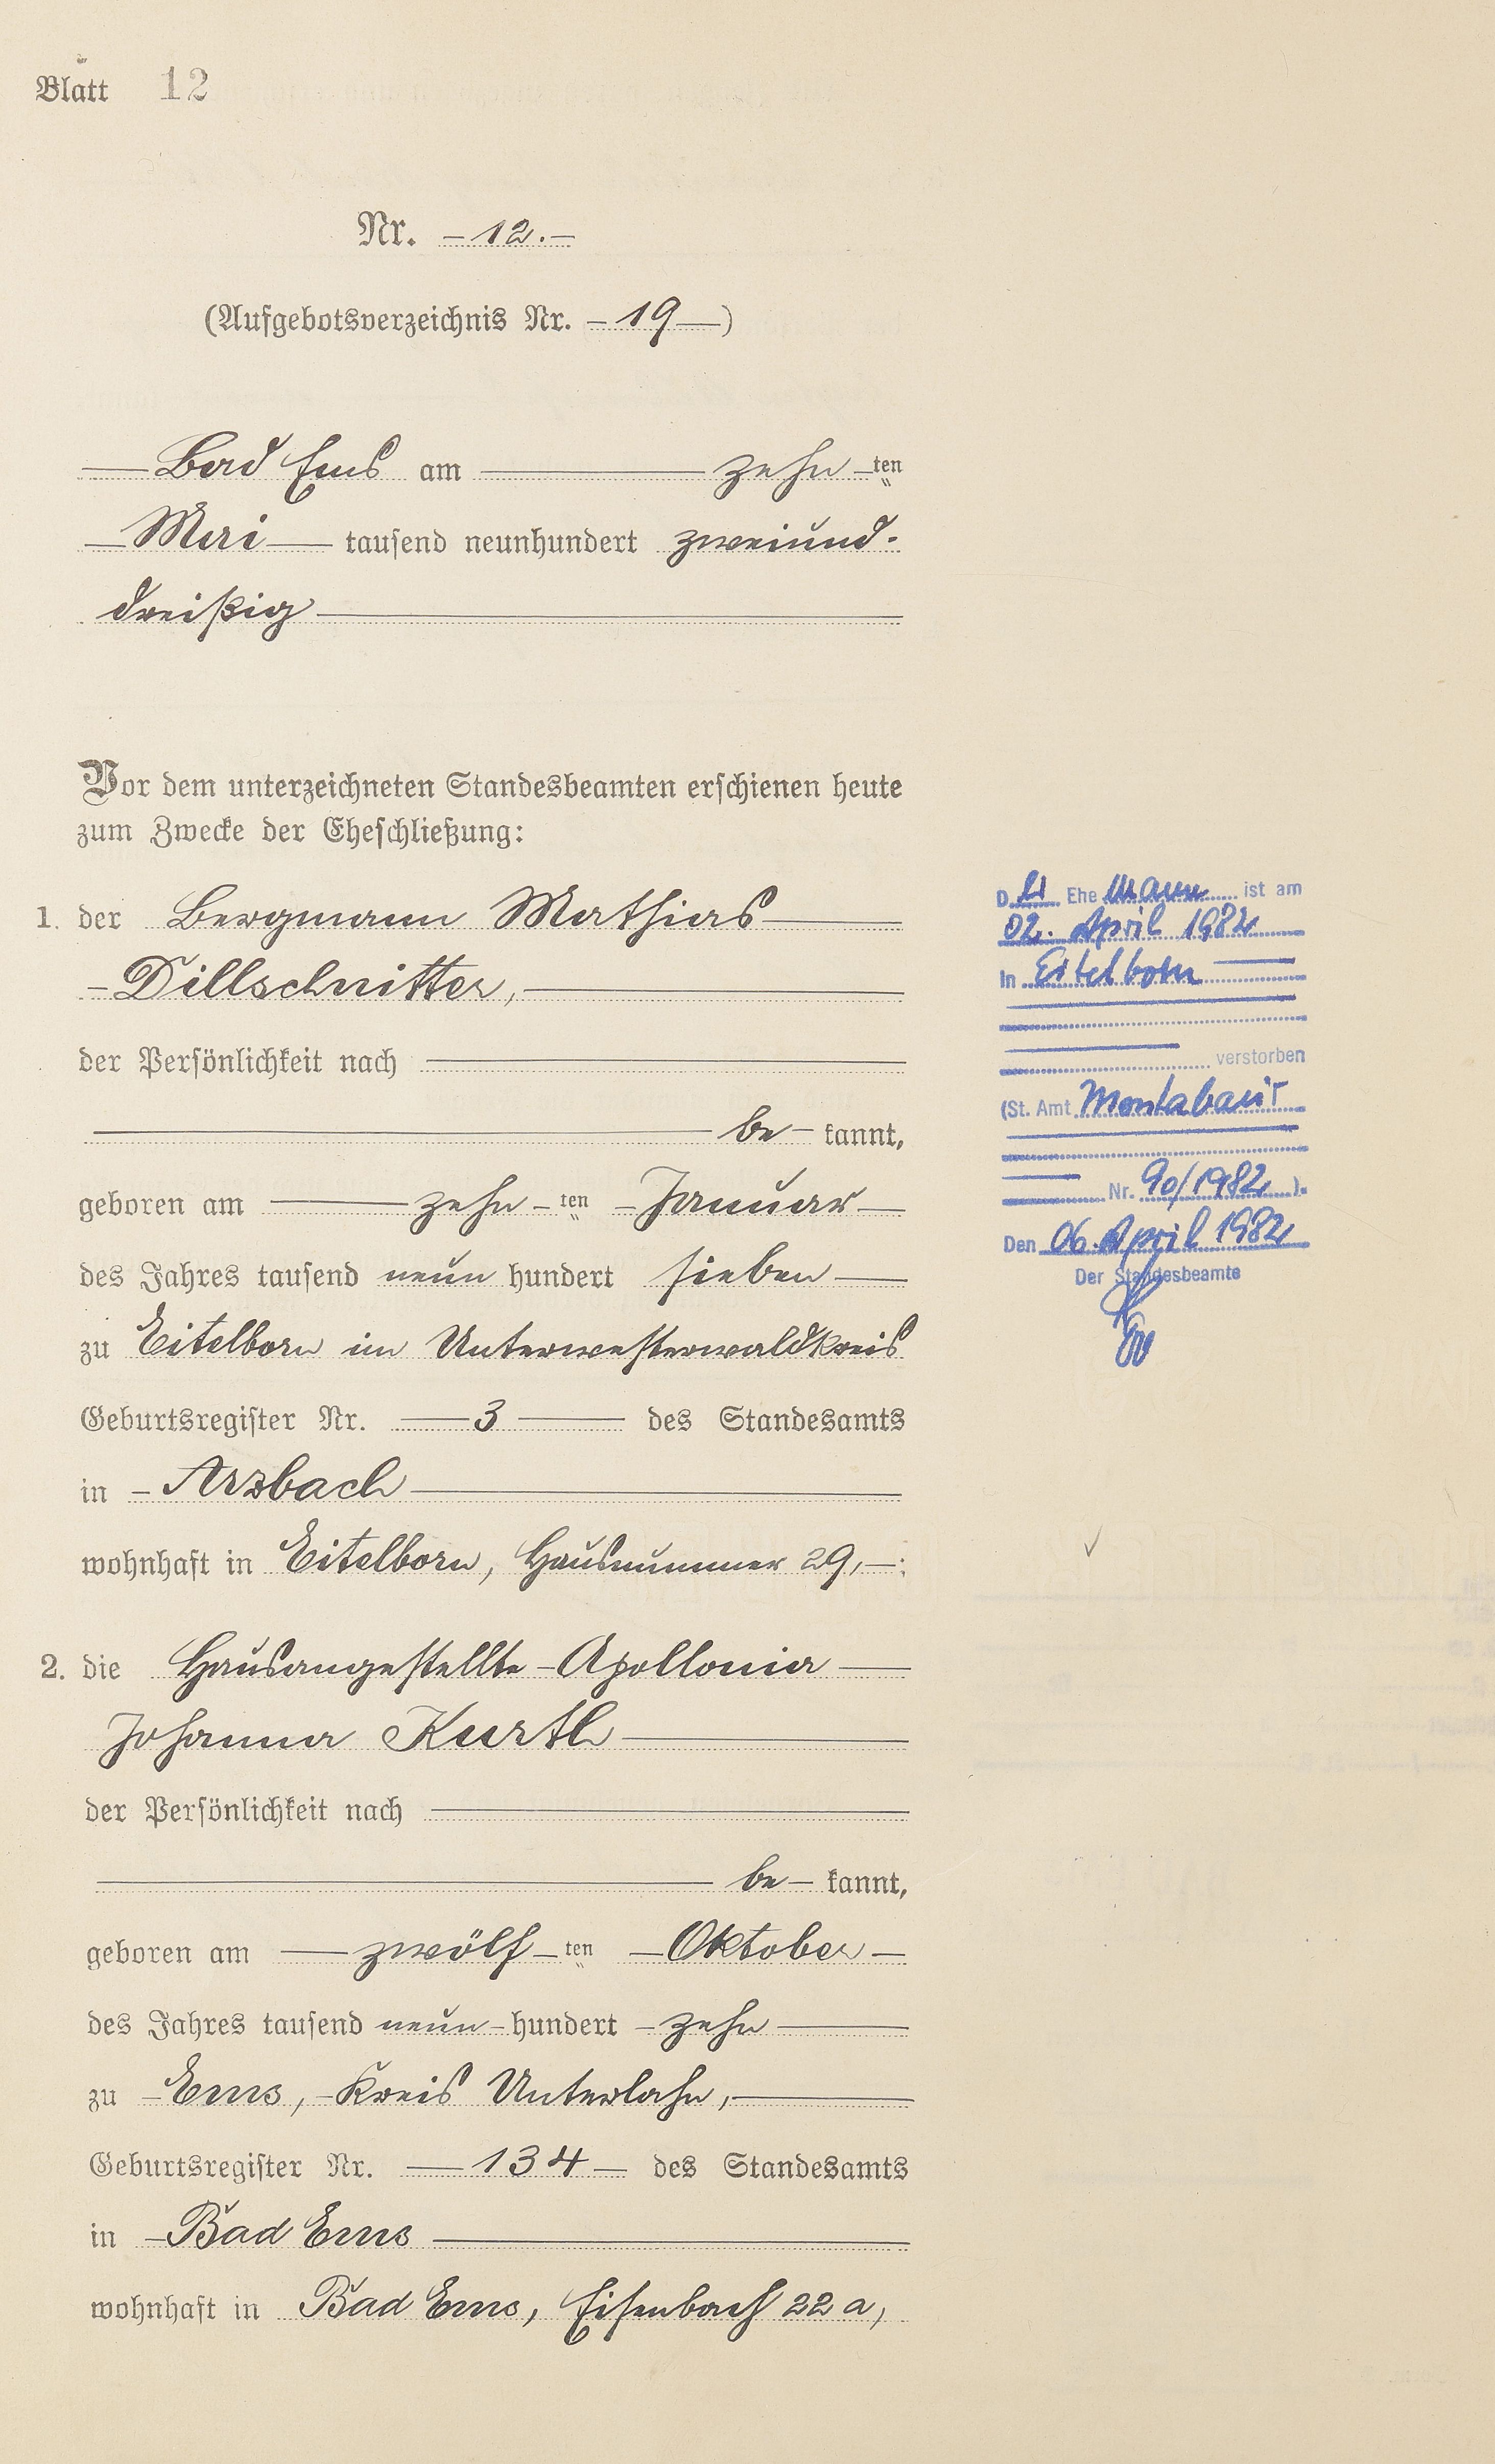 Blatt 12
Nr. – 12. –
(Aufgebotsverzeichnis Nr. – 19 –)
Bad Ems am zehn ten
Mai tausend neunhundert zweiund-
dreißig
Vor dem unterzeichneten Standesbeamten erschienen heute
zum Zwecke der Eheschließung:
1. der Bergmann Mathias
Dillschnitter,
der Persönlichkeit nach
be kannt,
geboren am zehn ten Januar
des Jahres tausend neun hundert sieben
zu Eitelborn im Unterwesterwaldkreis
Geburtsregister Nr. 3 des Standesamts
in Arzbach
wohnhaft in Eitelborn, Hausnummer 29, ;
2. die Hausangestellte Apollonia
Johanna Kurth
der Persönlichkeit nach
be kannt,
geboren am zwölf ten Oktober
des Jahres tausend neun hundert zehn
zu Ems, Kreis Unterlahn,
Geburtsregister Nr. 134 des Standesamts
in Bad Ems
wohnhaft in Bad Ems, Eisenbach 22 a,
D er Ehe mann ist am
02. April 1982
in Eitelborn
verstorben
(St. Amt Montabaur
Nr. 90/1982 ).
Den 06. April 1982
Der Standesbeamte